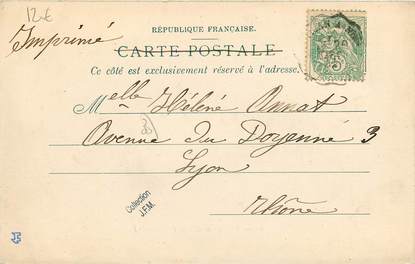 12€
RÉPUBLIQUE FRANÇAISE.
Imprimé
CARTE POSTALE
Ce côté est exclusivement réservé à l'adresse.
Melle Hélène Amat
Avenue du Doyenné 3
Lyon
Rhône
Collection
J.F.M.